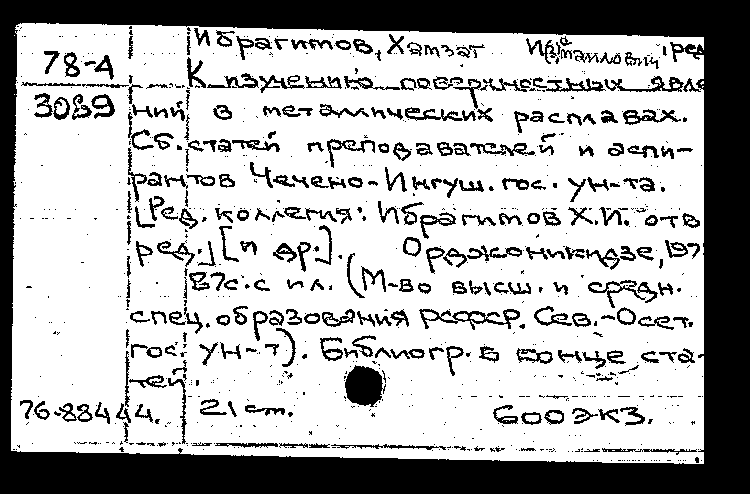 Ибрагимов, Хамзат Исмаилович, ред
78-4
К изучению поверхностных явле
3089
ний в металлических расплавах.
Сб. статей преподавателей и аспи-
рантов Чечено-Ингуш. гос. ун-та.
[Ред. коллегия: Ибрагимов Х.И. отв
ред.] [и др.]. Орджоникидзе, 197
87с. с ил. (М-во высш. и средн.
спец. образования РСФСР. Сев.-Осет.
гос. ун-т). Библиогр. в конце ста-
тей.
76-88444. 21 ст. 600 экз.